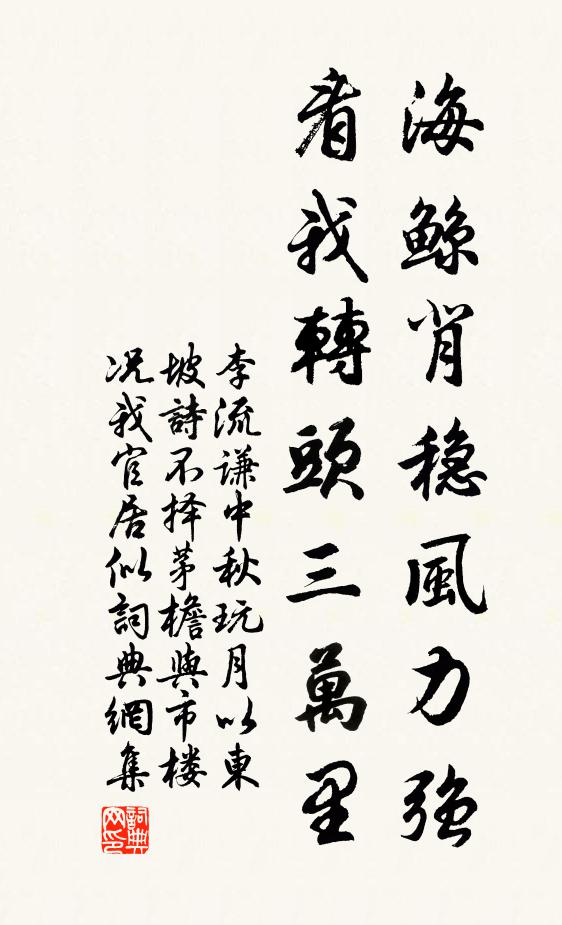 海鲸背稳風力強
看我轉頭三萬里
李流谦中秋玩月以東
坡詩不择茅檐與市楼
况我官居似詞典網集
詞典網印